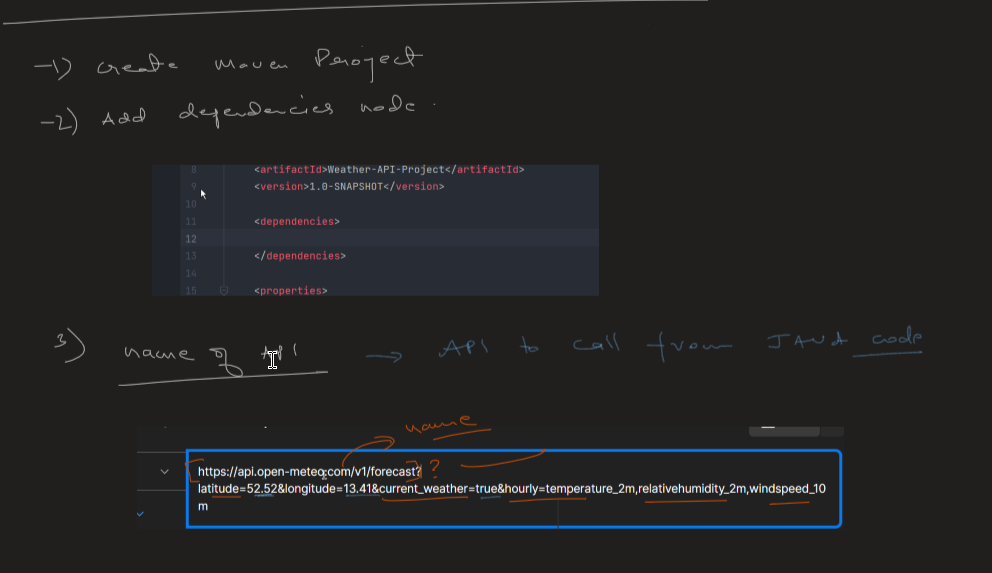 -1) create Maven Project
-2) Add dependencies node.
8 <artifactId>Weather-API-Project</artifactId>
9 <version>1.0-SNAPSHOT</version>
10
11 <dependencies>
12
13 </dependencies>
14
15 <properties>
3) name of API → API to call from JAVA code
name
https://api.open-meteo.com/v1/forecast?
?
latitude=52.52&longitude=13.41&current_weather=true&hourly=temperature_2m,relativehumidity_2m,windspeed_10
m